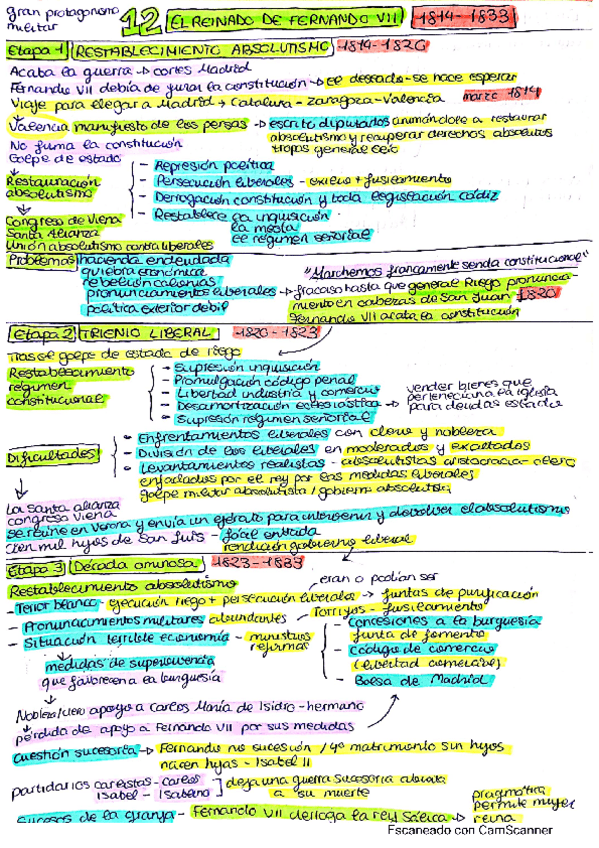 gran protagonismo
militar
12 EL REINADO DE FERNANDO VII 1814-1833
Etapa 1 RESTABLECIMIENTO ABSOLUTISMO 1814-1820
Acaba la guerra → cortes Madrid
Fernando VII debía de jurar la constitución → el deseado - se hace esperar
Viaje para llegar a Madrid → Cataluña - Zaragoza - Valencia marzo 1814
Valencia manifiesto de los persas → escrito diputados animándole a restaurar
absolutismo y recuperar derechos absolutos
tropas general Elío
No firma la constitución
Golpe de estado
Restauración
absolutismo
- Represión política
- Persecución liberales - exilio + fusilamiento
- Derrogación constitución y toda legislación Cádiz
- Restablece la inquisición
la mesta
el régimen señorial
Congreso de Viena
Santa Alianza
Unión absolutismo contra liberales
Problemas hacienda endeudada
quiebra económica
rebelión colonias
pronunciamientos liberales → fracaso hasta que general Riego pronuncia-
miento en cabezas de San Juan 1820
Fernando VII acata la constitución
política exterior débil
"Marchemos francamente senda constitucional"
Etapa 2 TRIENIO LIBERAL 1820-1823
Tras el golpe de estado de riego
Restablecimiento
régimen
constitucional
• Supresión inquisición
- Promulgación código penal
- Libertad industria y comercio
- Desamortización eclesiástica → vender bienes que
pertenecían a la iglesia
para deudas estado
• Supresión régimen señorial
Dificultades
• Enfrentamientos liberales con clero y nobleza
• División de los liberales en moderados y exaltados
• Levantamientos realistas - absolutistas aristocracia - clero
enfadados por el rey por las medidas liberales
golpe militar absolutista / gobierno absolutista
La Santa alianza
congreso Viena
se reúne en Verona y envía un ejército para intervenir y devolver el absolutismo
Cien mil hijos de San Luis - fácil entrada
rendición gobierno liberal
Etapa 3 Década ominosa 1823-1833
Restablecimiento absolutismo
eran o podían ser
- Terror blanco - ejecución riego + persecución liberales → juntas de purificación
- Pronunciamientos militares abundantes - Torrijos - fusilamiento
- Situación terrible economía - ministros
reformas
- Concesiones a la burguesía
junta de fomento
- Código de comercio
(libertad comercial)
- Bolsa de Madrid
medidas de supervivencia
que favorecen a la burguesía
Nobleza/clero apoyo a Carlos María de Isidro - hermano
pérdida de apoyo a Fernando VII por sus medidas
Cuestión sucesoria → Fernando no sucesión / 4º matrimonio sin hijos
nacen hijas - Isabel II
partidarios carlistas - Carlos
Isabel - Isabelino
deja una guerra sucesoria abierta
a su muerte
sucesos de la granja - Fernando VII deroga la ley Sálica → pragmática
permite mujer
reina
Escaneado con CamScanner